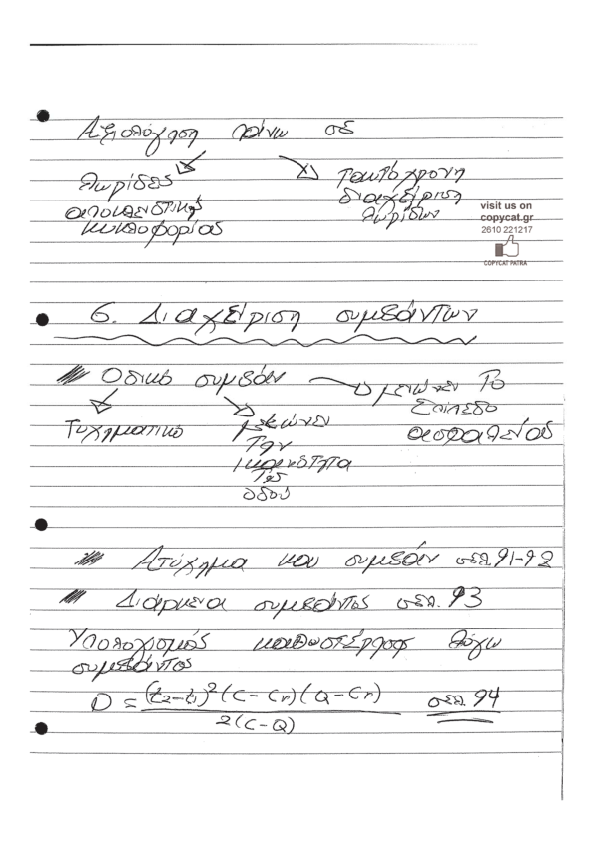 Αξιολόγηση πάνω σε
Λωρίδες
αποκλειστικής
κυκλοφορίας
Ταυτόχρονη
διαχείριση
λωρίδων
visit us on
copycat.gr
2610 221217
COPYCAT PATRA
6. Διαχείριση συμβάντων
Οδικό συμβάν
μειώνει το
επίπεδο
ασφαλείας
Τυχηματικό
μειώνει
την
ικανότητα
της
οδού
Ατύχημα και συμβάν σελ. 91-92
Διάρκεια συμβάντος σελ. 93
Υπολογισμός καθυστέρησης λόγω
συμβάντος
D = (t2-t1)²(C-Cr)(Q-Cr) / 2(C-Q) σελ. 94